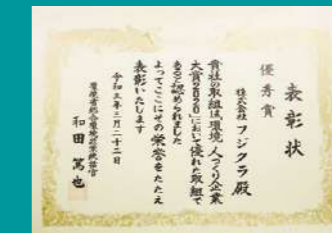 表彰状
優秀賞
株式会社 フジクラ 殿
貴社の取組は環境 人づくり企業
大賞2020において優れた取組で
あると認められました
よってここにその栄誉をたたえ
表彰いたします
令和三年三月二十二日
環境省総合環境政策統括官
和田 篤也